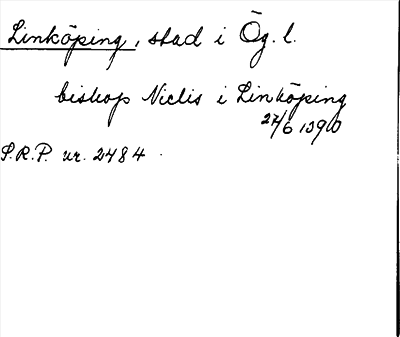 Linköping, stad i Ög. l.
biskop Niclis i Linköping
27/6 1390
S.R.P. nr. 2484.